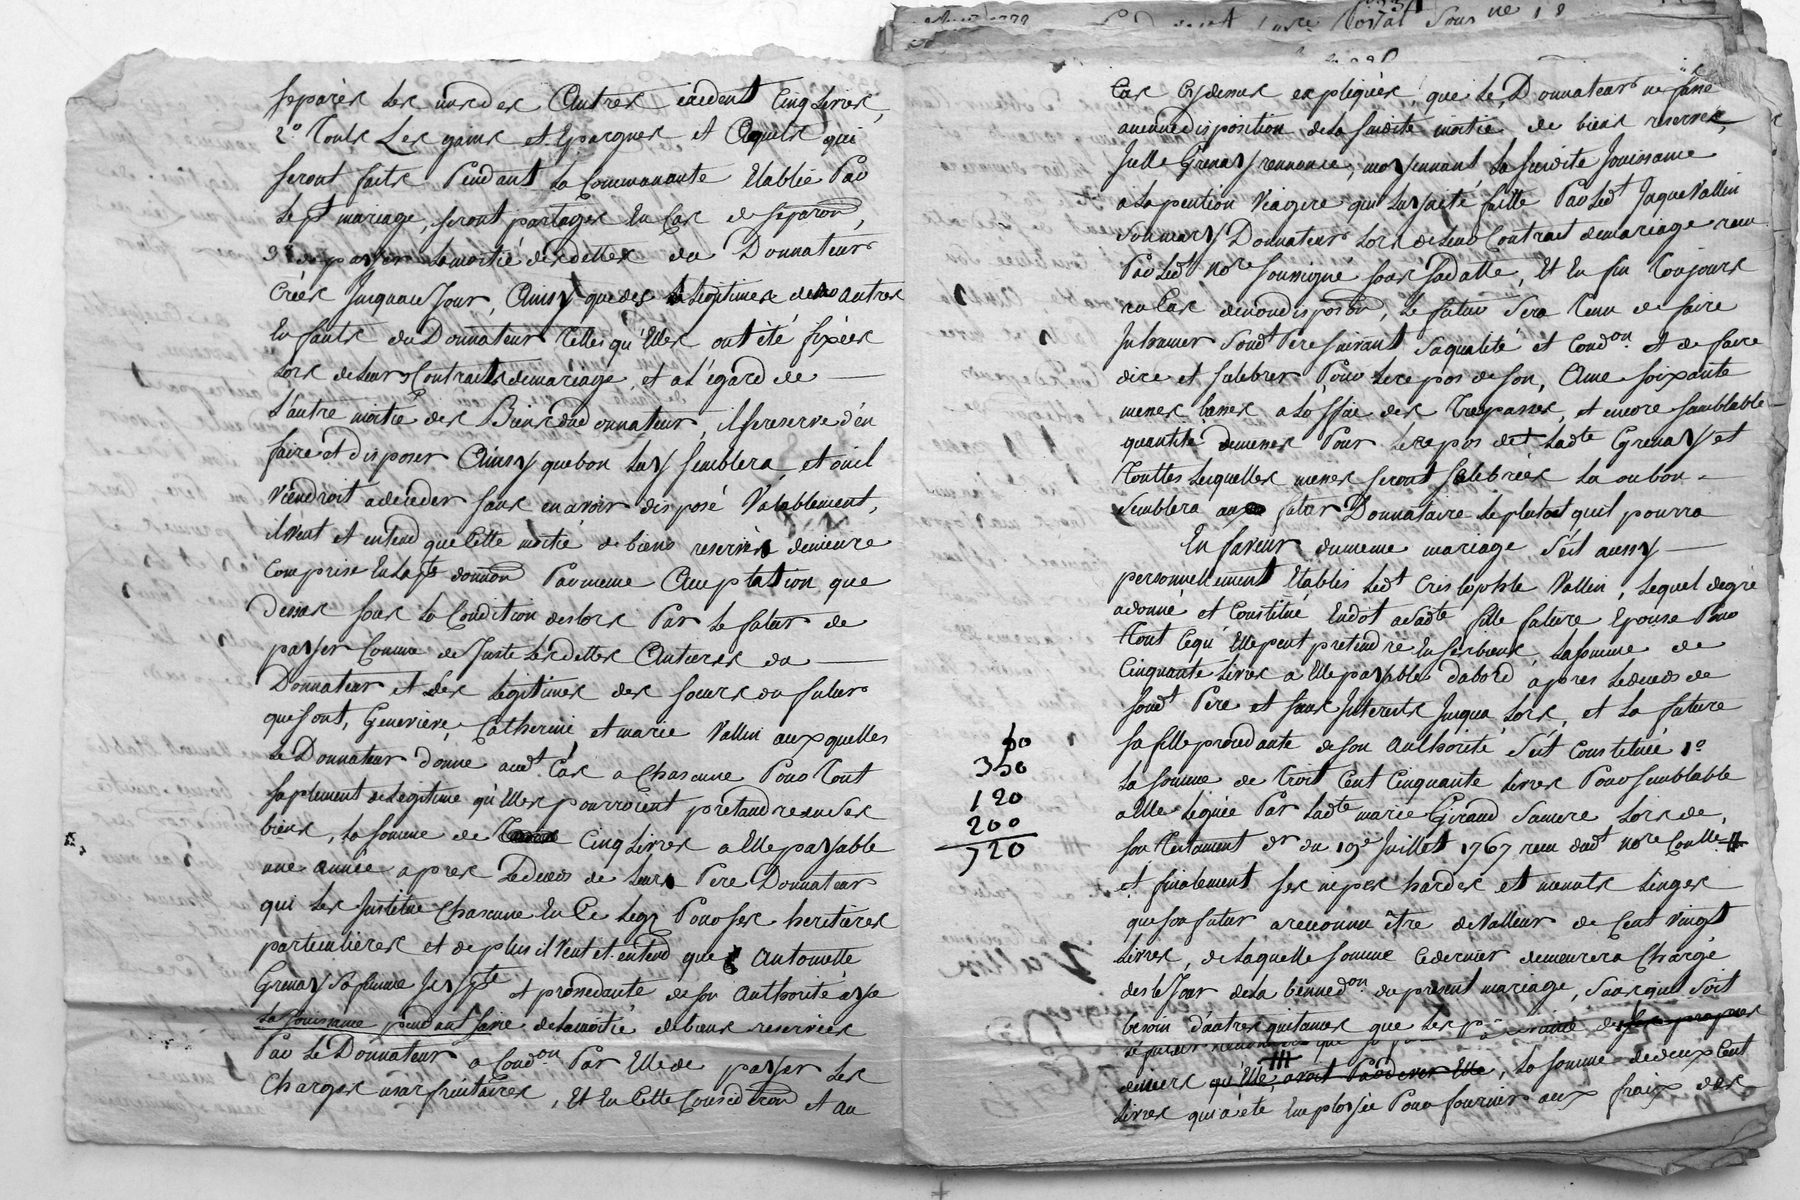 separés les uns des Autres excedent Cinq Livres,
2º Touts Les gains et Epargnes et Aquets qui
seront faits Pendant la Communauté Etablie Par
le pt mariage, seront partagés En Cas de separon,
3º de payer la moitié des dettes du Donnateur
Créés Jusqu'au Jour, Ainsy que des Legitimes des autres
Enfants du Donnateur Telles qu'Elles ont été fixées
Lors de leurs Contracts de mariage, et a L'égard de
L'autre moitié des Biens du donnateur, il se reserve d'en
faire et disposer Ainsy que bon Luy semblera, et ou il
Viendroit a déceder sans en avoir disposé Valablement,
il Veut et entend que Cette moitié de biens reservés demeure
Comprise En la pte donnon Par meme Acceptation que
Dessus sous la Condition deslors Par Le futur de
payer Comme de Juste Les dettes du
Donnateur et Les Legitimes des soeurs du futur
qui sont, Genevieve, Catherine et marie Vallin auxquelles
Le Donnateur donne audt Cas a Chascune Pour Tout
suplement de Legitime qu'Elles pourroient prétendre en ses
biens, la somme de Cinq Livres a Elle payable
une année apres Le deces de Leur Pere Donnateur
qui Les Institue Chascune En Ce Legz Pour ses heritieres
particulieres et de plus il Veut et entend que Antoinette
Grenay sa femme Icy pte et procedante de son Authorité aye
La Jouissance pendant sa vie de la moitié de biens reservés
Par Le Donnateur a Condon Par Elle de payer Les
Charges usufruitaires, Et En Cette Considéraon et au
Cas Cy dessus expliqués que Le Donnateur ne fasse
aucune disposition de la susdite moitié de biens reservés,
Grenay renonce, moyennant la susdite Jouissance
a la pention Viagere qui Luy a été faitte Par Ledt Jaque Vallin
son mary Donnateur Lors de Leur Contract de mariage recu
Par Ledt Nore soussigné sous sa datte, Et En fin Toujours
au Cas de non disposon, Le futur Sera Tenu de faire
Inhumer Sondt Pere suivant Sa qualité et Condon. et de faire
dire et selebrer Pour Le repos de son Ame soixante
messes basses a L'offic des Trepassés, et encore semblable
quantité de messes Pour Le repos de Ladte Grenay et
Touttes Lesquelles messes seront selebrées La ou bon
semblera au futur Donnataire le plutot quil pourra
En faveur du meme mariage s'est aussy
personnellement Etablis Ledt Cristophle Vallin, Lequel de gré
a donné et Constitué En dot a sadte fille future Epouse Pour
Tout Ce qu'Elle peut pretendre En ses biens, La somme de
Cinquante Livres a Elle payable d'abord apres Le deces de
sondt Pere et sans Interets Jusqua Lors, et La future
sa fille procedante de son Authorité s'est Constituée 1º
La somme de Trois Cent Cinquante Livres Pour semblable
a Elle Leguée Par Ladte marie Giraud sa mere Lors de
son Testament dr du 19e Juillet 1767 recu dudt Nore
et finalement ses nipes hardes et menuts Linges
que son futur a reconnu être de Valleur de Cent Vingt
Livres, de Laquelle somme Ce dernier demeurera Chargé
des le Jour de la bennedon du présent mariage, sans quil soit
besoin d'autres quitances que Les ptes
deniers qu'Elle avoit Pardevers Elle, La somme de deux Cent
Livres qui a été Employée Pour fournir aux fraix des
50
350
120
200
720
Vallin